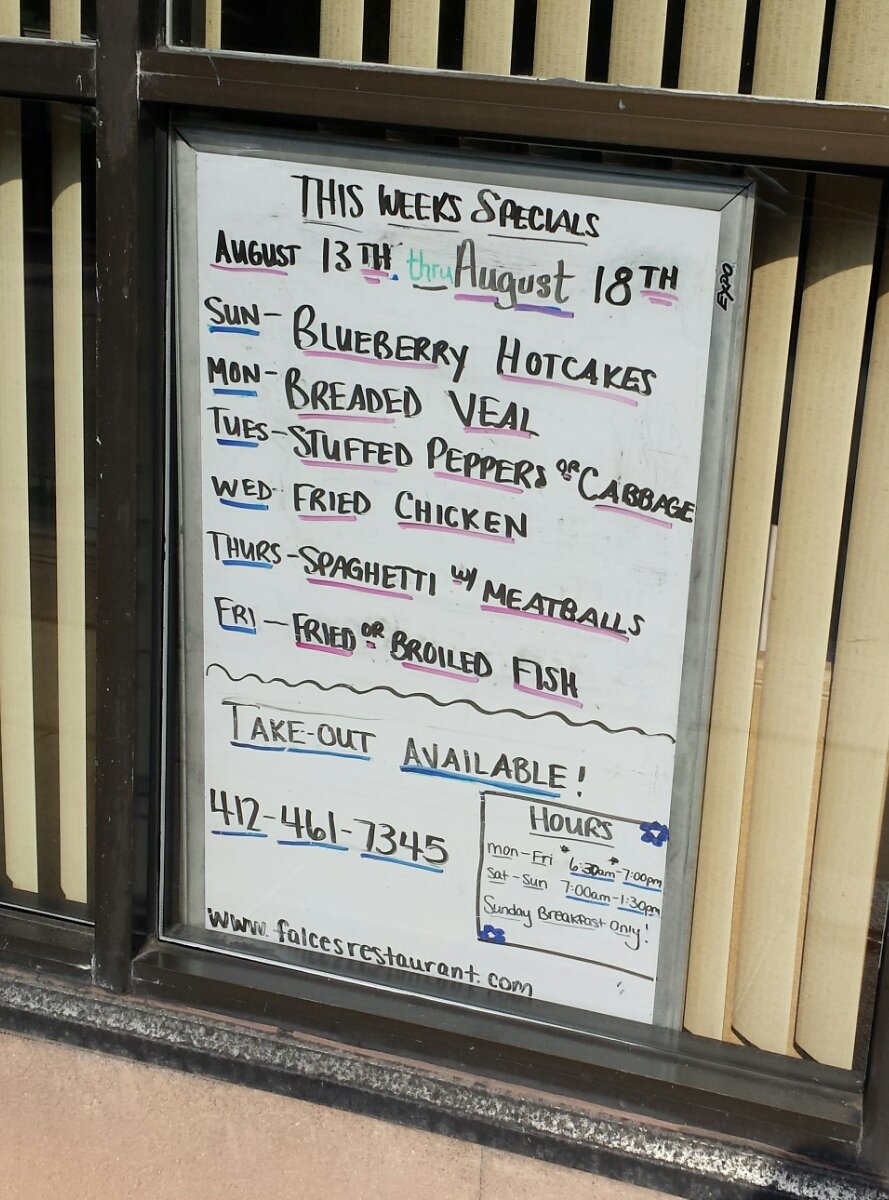 THIS WEEKS SPECIALS
AUGUST 13TH. thru August 18TH
EXPO
SUN- BLUEBERRY HOTCAKES
MON- BREADED VEAL
TUES-STUFFED PEPPERS OR CABBAGE
WED- FRIED CHICKEN
THURS-SPAGHETTI W/ MEATBALLS
FRI - FRIED OR BROILED FISH
TAKE-OUT AVAILABLE!
412-461-7345
HOURS
Mon-Fri * 6:30am*-7:00pm
Sat-Sun 7:00am-1:30pm
Sunday Breakfast Only!
www.falcesrestaurant.com